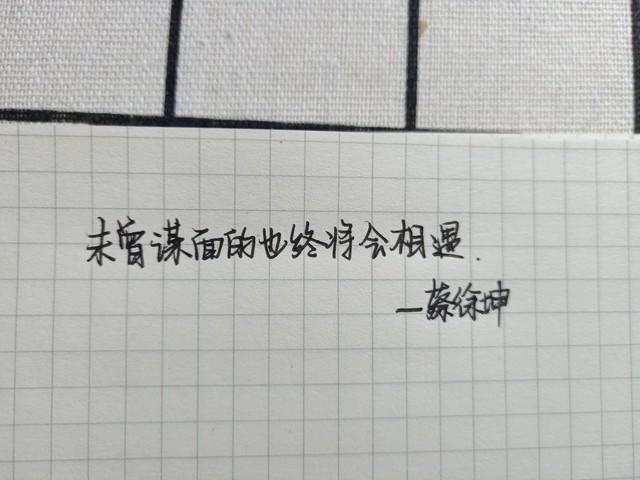 未曾谋面的也终将会相遇.
—蔡徐坤